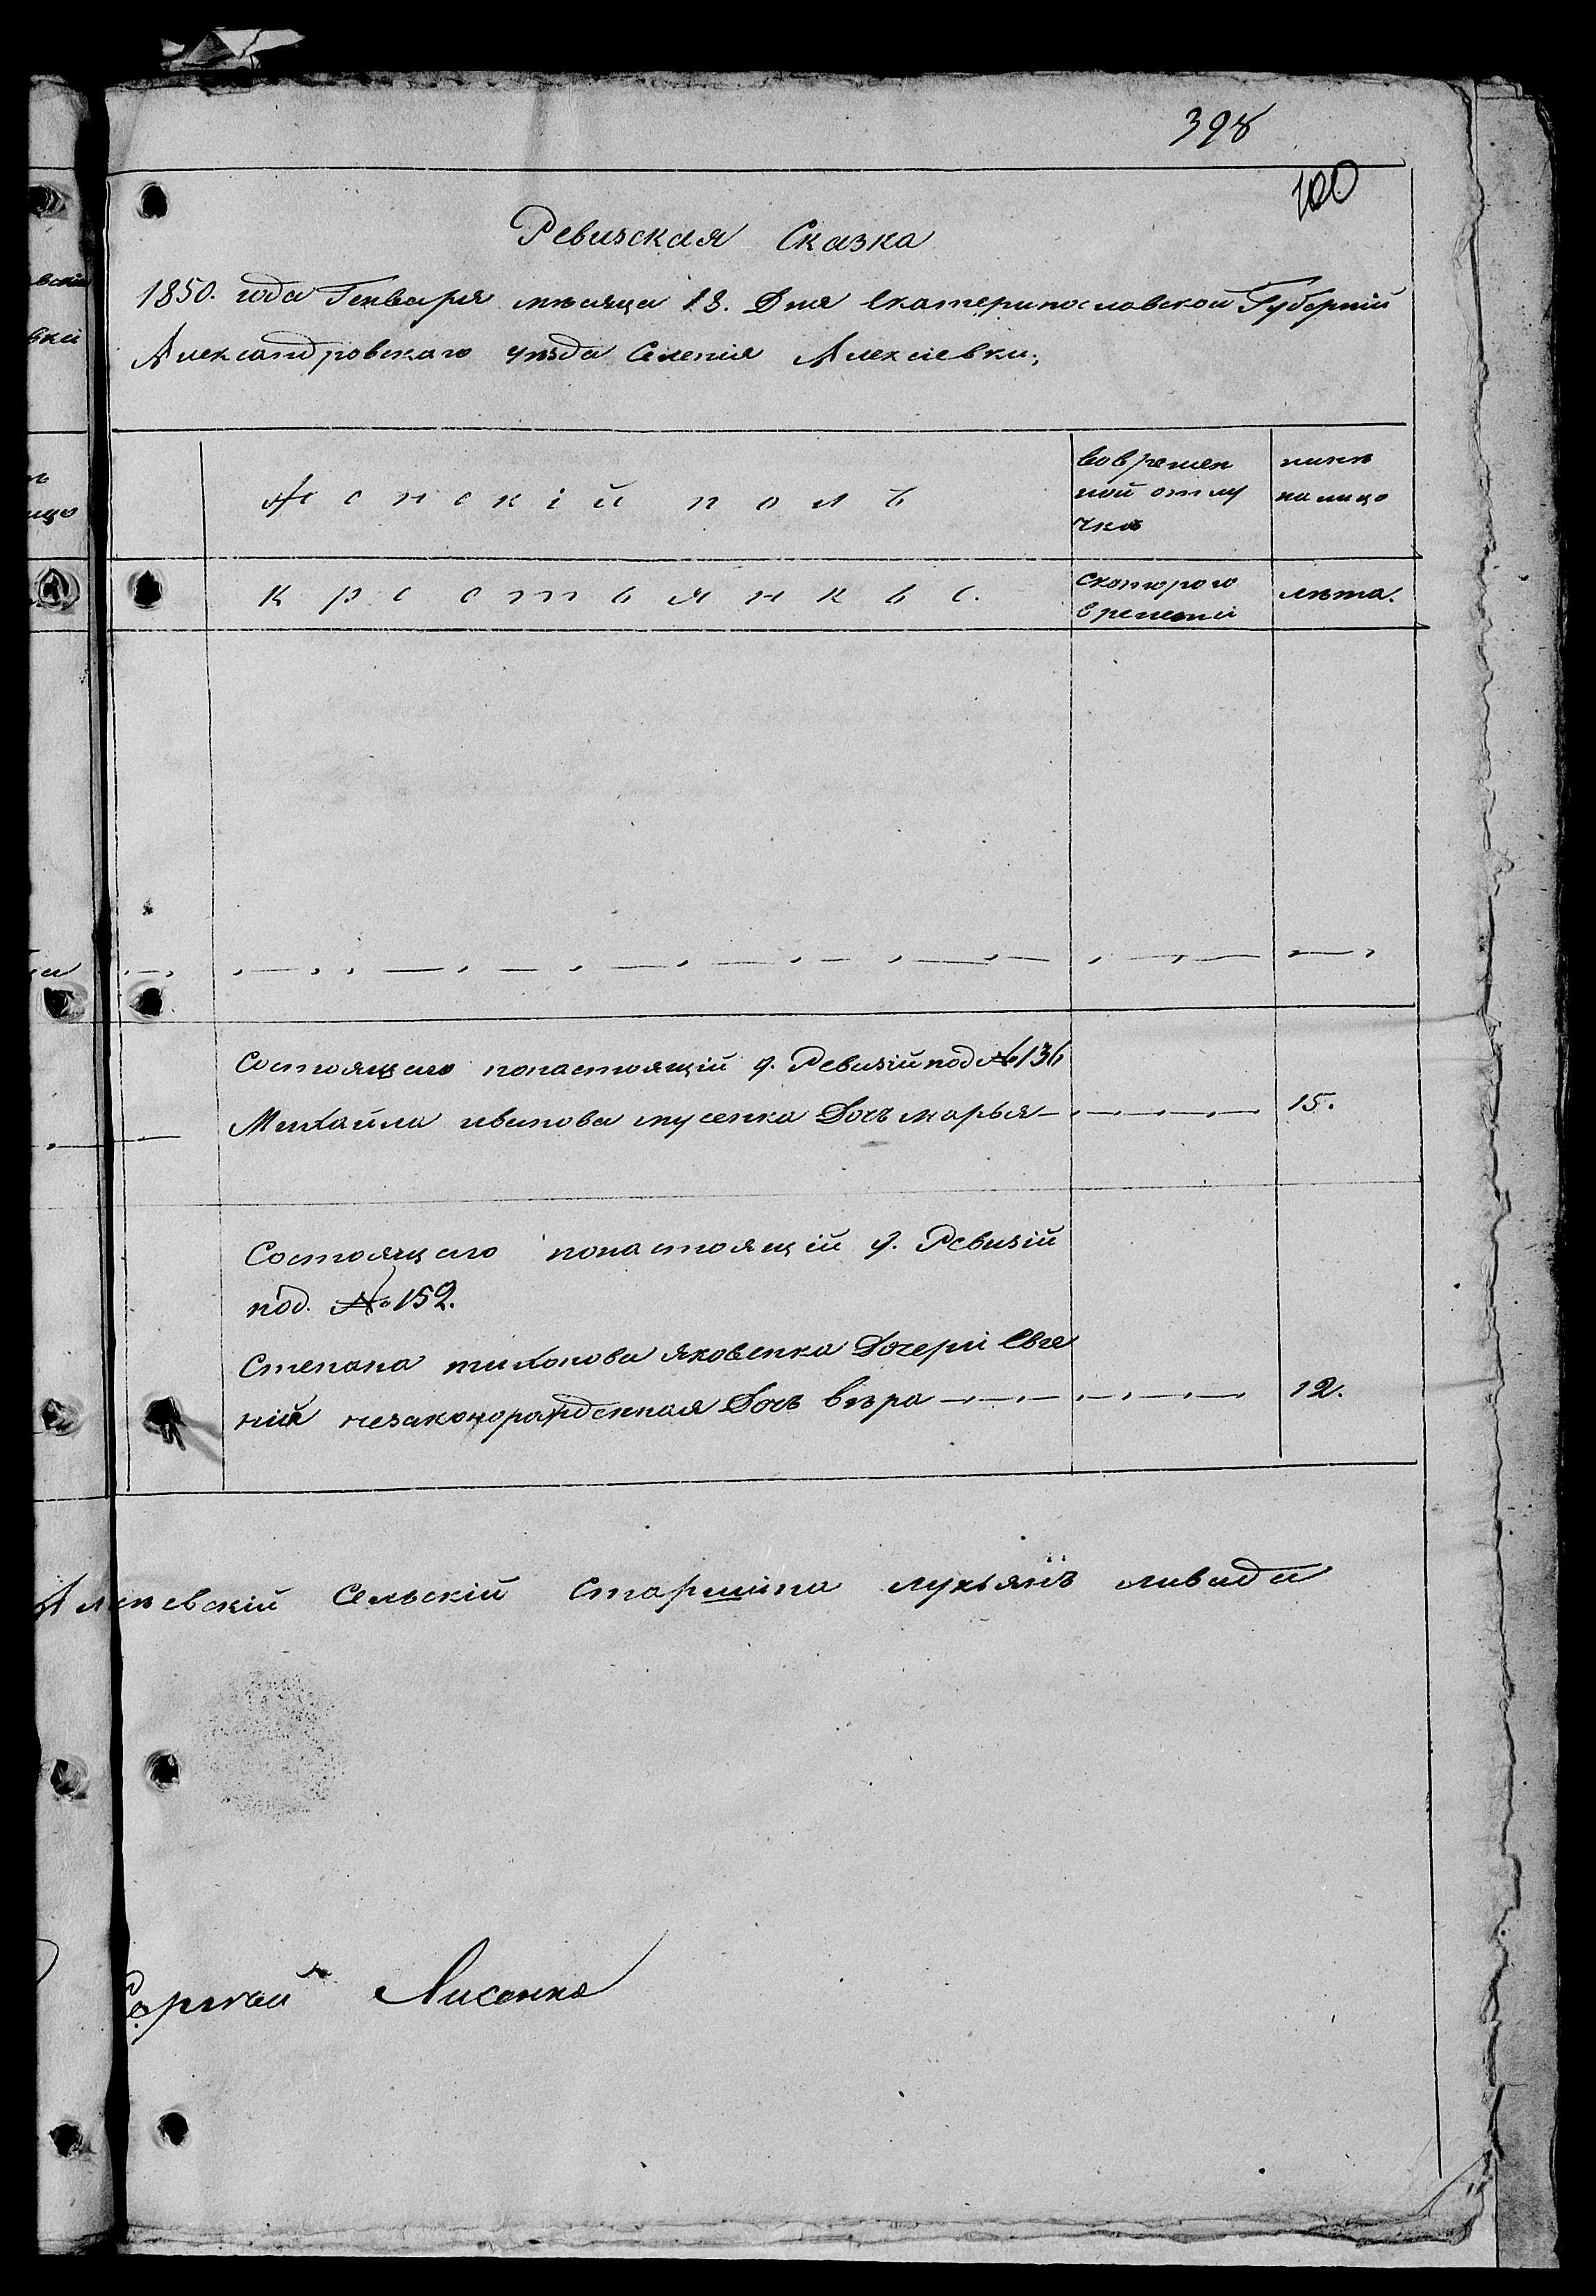 398
100
Ревизская Сказка
1850. года Генваря мѣсяца 18. Дня Екатеринославской Губерніи
Александровскаго уѣзда Селенія Алексіевки;
Женскій полъ
вовремен
ной отлу
чкѣ
нынѣ
налицо
Крестьянкъ
скоторого
времени
лѣта.
Состоящаго понастоящій 9. Ревизій под № 136
Михайла иванова мусенка Дочъ марья 15.
Состоящаго понастоящій 9. Ревизій
под. № 152.
Степана тихонова яковенка Дочери Евге
ній незаконорожденная Дочъ вѣра 12.
Сельскій Старшина лукьянъ
Сергѣй Лисенко